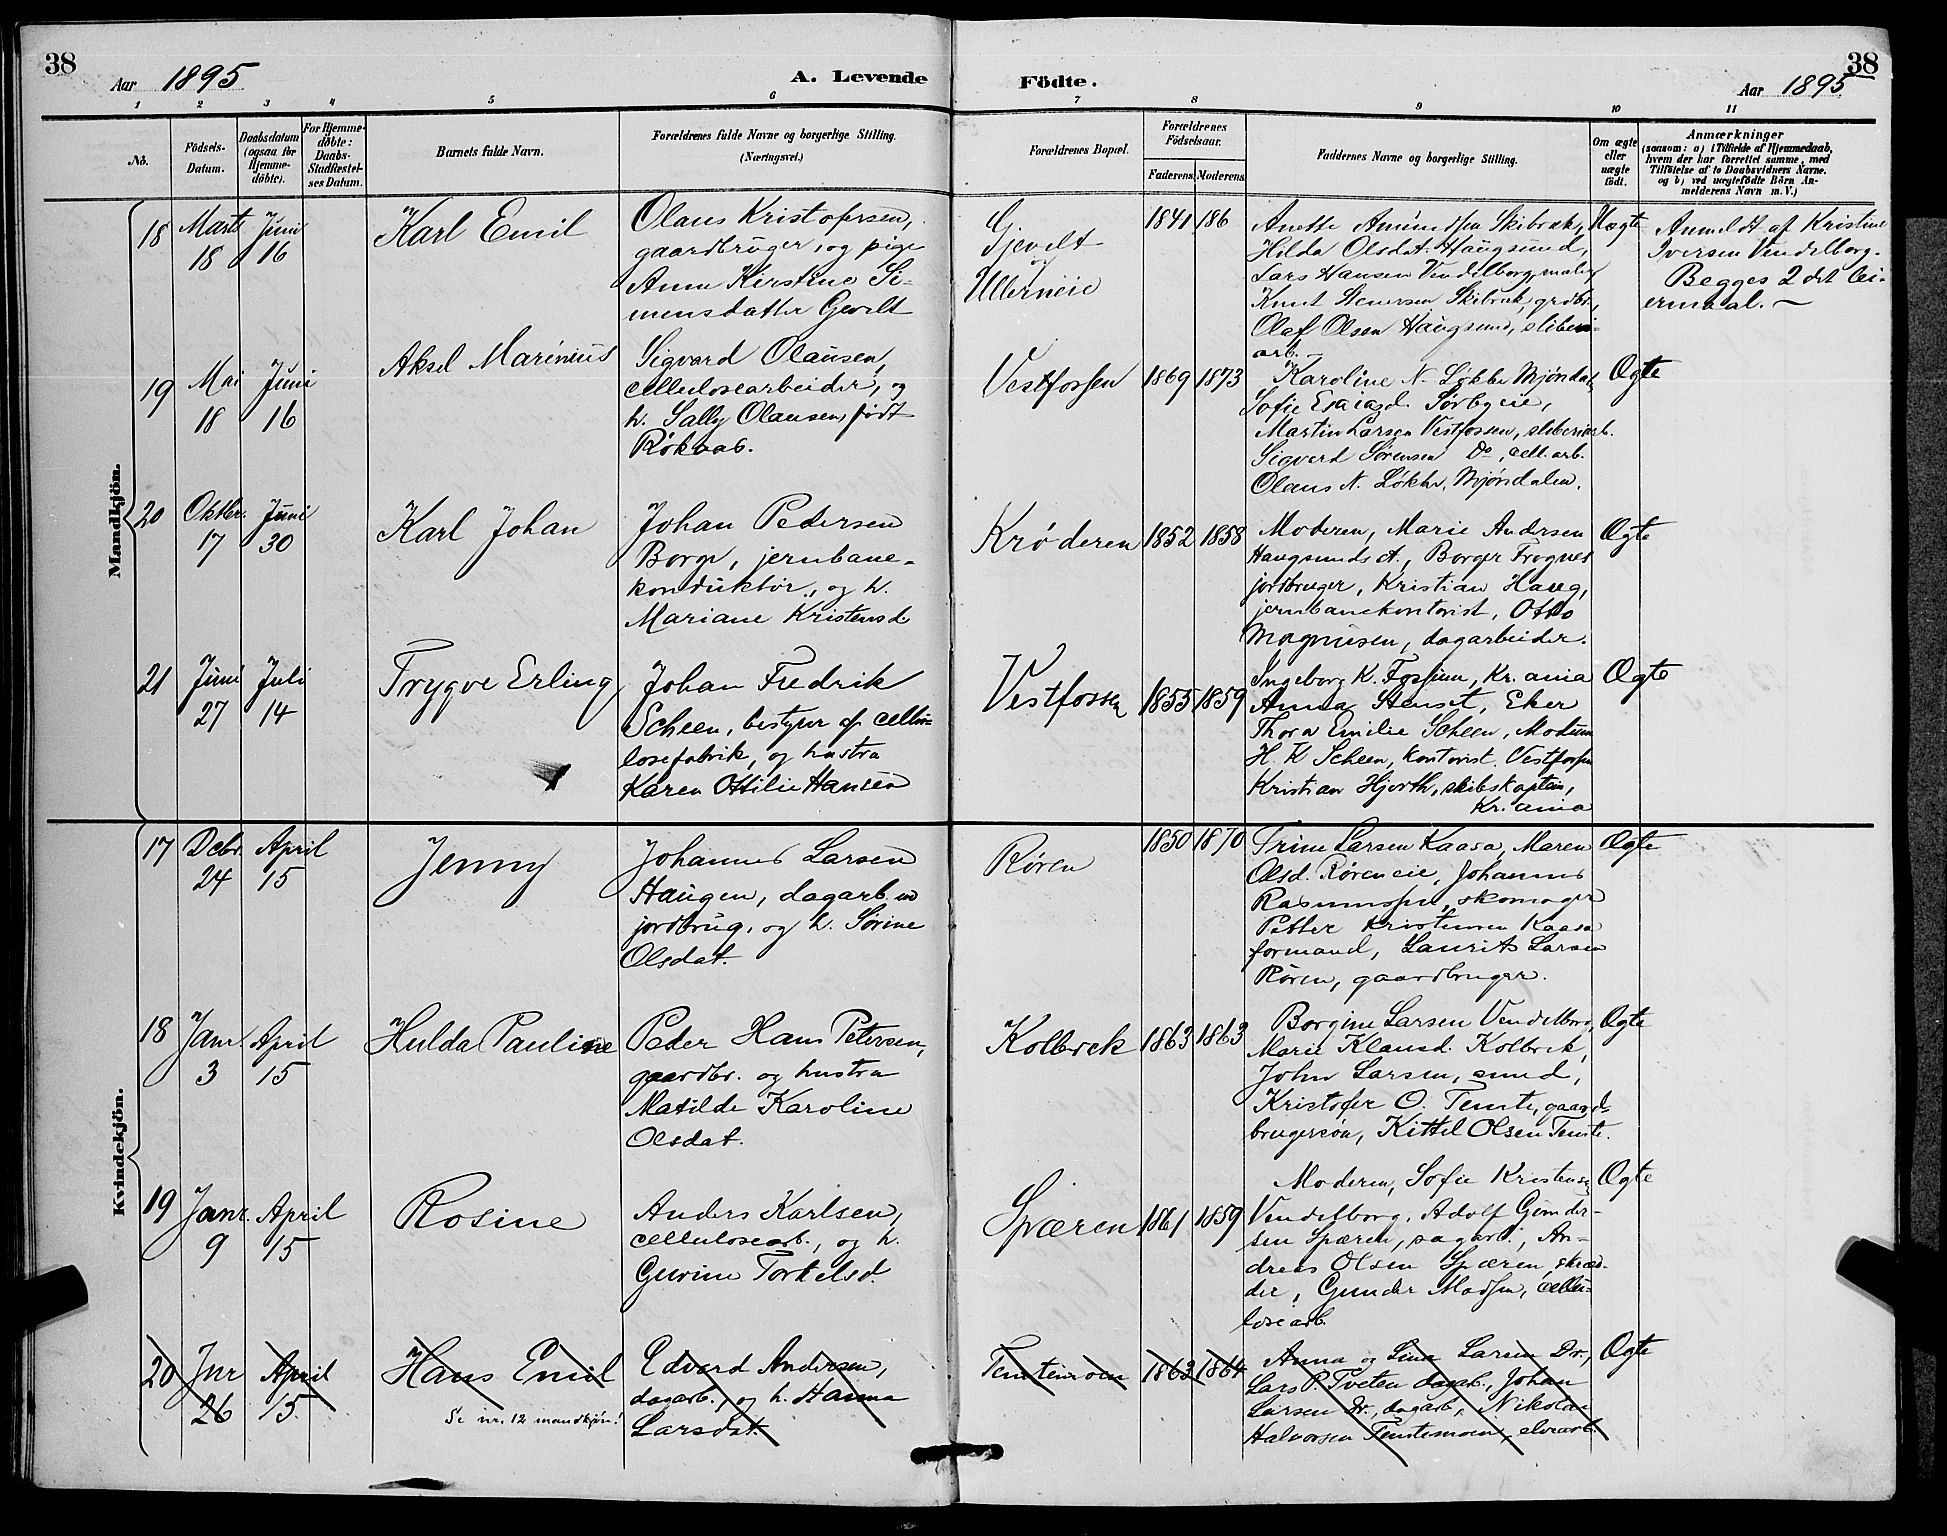 38
Aar 1895
A. Levende
Födte.
Aar 1895
38
1 2 3 4 5 6 7 8 9 10 11
No.
Födsels-
Datum.
Daabsdatum
(ogsaa for
Hjemme-
döbte).
For Hjemme-
döbte:
Daabs-
Stadfæstel-
ses Datum.
Barnets fulde Navn.
Forældrenes fulde Navne og borgerlige Stilling.
(Næringsvei.)
Forældrenes Bopæl.
Forældrenes
Födselsaar.
Faderens. Moderens.
Faddernes Navne og borgerlige Stilling.
Om ægte
eller
uægte
födt.
Anmærkninger
(saasom: a) i Tilfælde af Hjemmedaab,
hvem der har forrettet samme, med
Tilföielse af to Daabsvidners Navne.
og b) ved uægtefödte Börn An-
melderens Navn m. V.)
Mandkjön.
18
Marts
18
Juni
16
Karl Emil
Olaus Kristofersen,
gaardbruger, og pige
Anne Kirstine Si-
mensdatter Gevelt
Gjevelt
og
Ullerneie
1841 186
Anette Amundsen Skibrek,
Hilda Olsdat. Haugsund,
Lars Hansen Vendelborg, maler
Knut Stenersen Skibrek, grdbr.,
Olaf Olsen Haugsund, sliberi-
arb.
Uægte
Anmeldt af Kristine
Iversen Vendelborg.
Begges 2 det lei-
ermaal. —
19
Mai
18
Juni
16
Aksel Marinius
Sigvard Olausen,
cellulosearbeider, og
h. Sally Olausen født
Røkaas.
Vestfossen
1869 1873
Karoline N. Løkke Mjøndal,
Sofie Esaiasd. Sørbyeie,
Martin Larsen Vestfossen, sliberiarb.
Sigverd Sørensen Do, cell. arb.
Olaus N. Løkke, Mjøndalen.
Ægte
20
Oktbr.
17
Juni
30
Karl Johan
Johan Pedersen
Borge, jernbane-
konduktør, og h.
Mariane Kristensd.
Krøderen
1852 1858
Moderen, Marie Andersen
Haugsunds st., Borger Frogner
jordbruger, Kristian Haug,
jernbanekontorist, Otto
Magnusen, dagarbeider.
Ægte
21
Juni
27
Juli
14
Trygve Erling
Johan Fredrik
Scheen, bestyrer af cellu-
losefabrik, og hustru
Karen Ottilie Hansen
Vestfossen
1855 1859
Ingeborg K. Fossum, Kr.ania
Anna Stenset, Eker
Thora Emilie Scheen, Modum
H. K Scheen, kontorist, Vestfossen
Kristian Hjorth, skibskaptein,
Kr. ania
Ægte
Kvindekjön.
17
Debr.
24
April
15
Jenny
Johannes Larsen
Haugen, dagarb. m
jordbrug, og h. Sørine
Olsdat.
Røren
1850 1870
Trine Larsen Kaasa, Maren
Olsd. Røreneie, Johannes
Rasmussen, skomager
Petter Kristensen Kaasa
formand, Laurits Larsen
Røren, gaardbruger.
Ægte
18
Janr.
3
April
15
Hulda Pauline
Peder Hans Petersen,
gaardbr. og hustru
Matilde Karoline
Olsdat.
Kolbrek
1863 1863
Borgine Larsen Vendelborg,
Marie Klausd. Kolbrek,
John Larsen, smed,
Kristofer O. Temte, gaard-
brugersøn, Kittel Olsen Temte.
Ægte
19
Janr.
9
April
15
Rosine
Anders Karlsen,
cellulosearb., og h.
Gurine Torkelsd.
Spæren
1861 1859
Moderen, Sofie Kristensen
Vendelborg, Adolf Gunder-
sen Spæren, sagarb., An-
dreas Olsen Spæren, skræd-
der, Gunder Madsen, cellu-
losearb.
Ægte
20
Jnr
26
April
15.
Hans Emil
Se nr. 12 mandkjøn!
Edvard Andersen,
dagarb., og h. Hanna
Larsdat.
Temtemoen
1863 1864
Anna og Lina Larsen Do.,
Lars P. Tveten dagarb., Johan
Larsen Do., dagarb., Nikolai
Halvorsen Temtemoen, elvearb.
Ægte